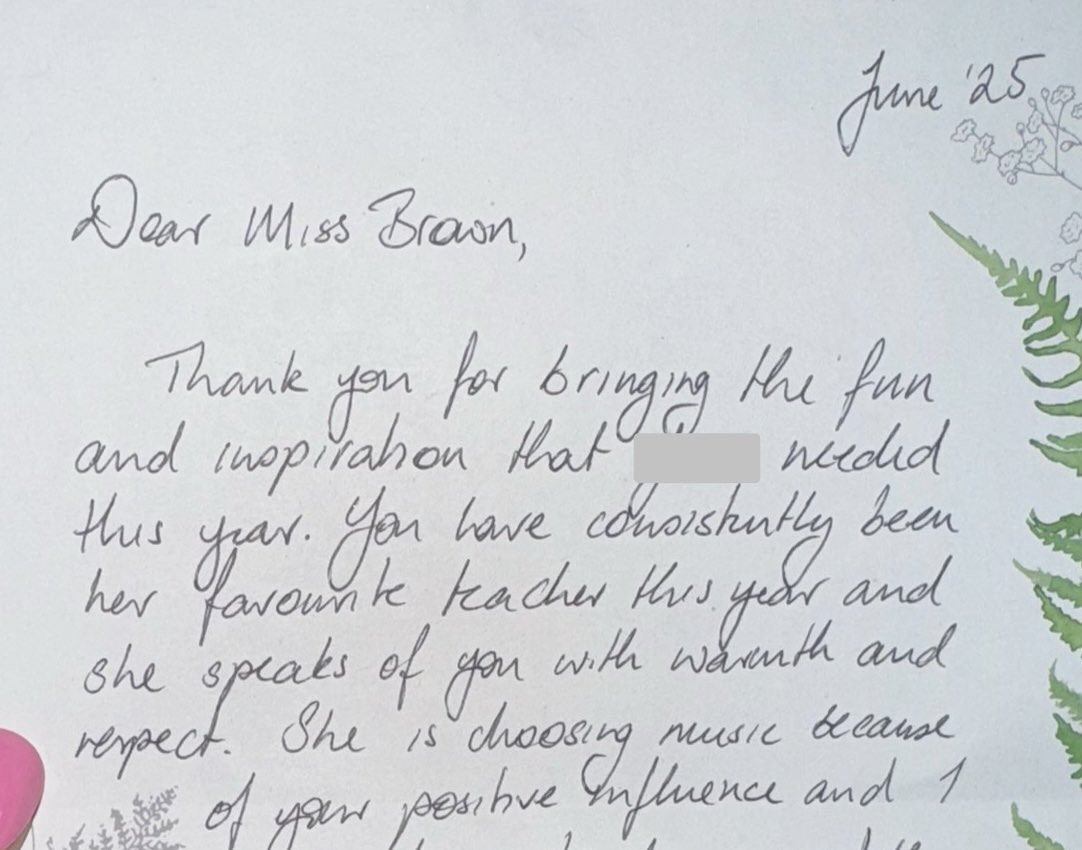 June '25
Dear Miss Brown,
Thank you for bringing the fun
and inspiration that needed
this year. You have consistently been
her favourite teacher this year and
she speaks of you with warmth and
respect. She is choosing music because
of your positive influence and I